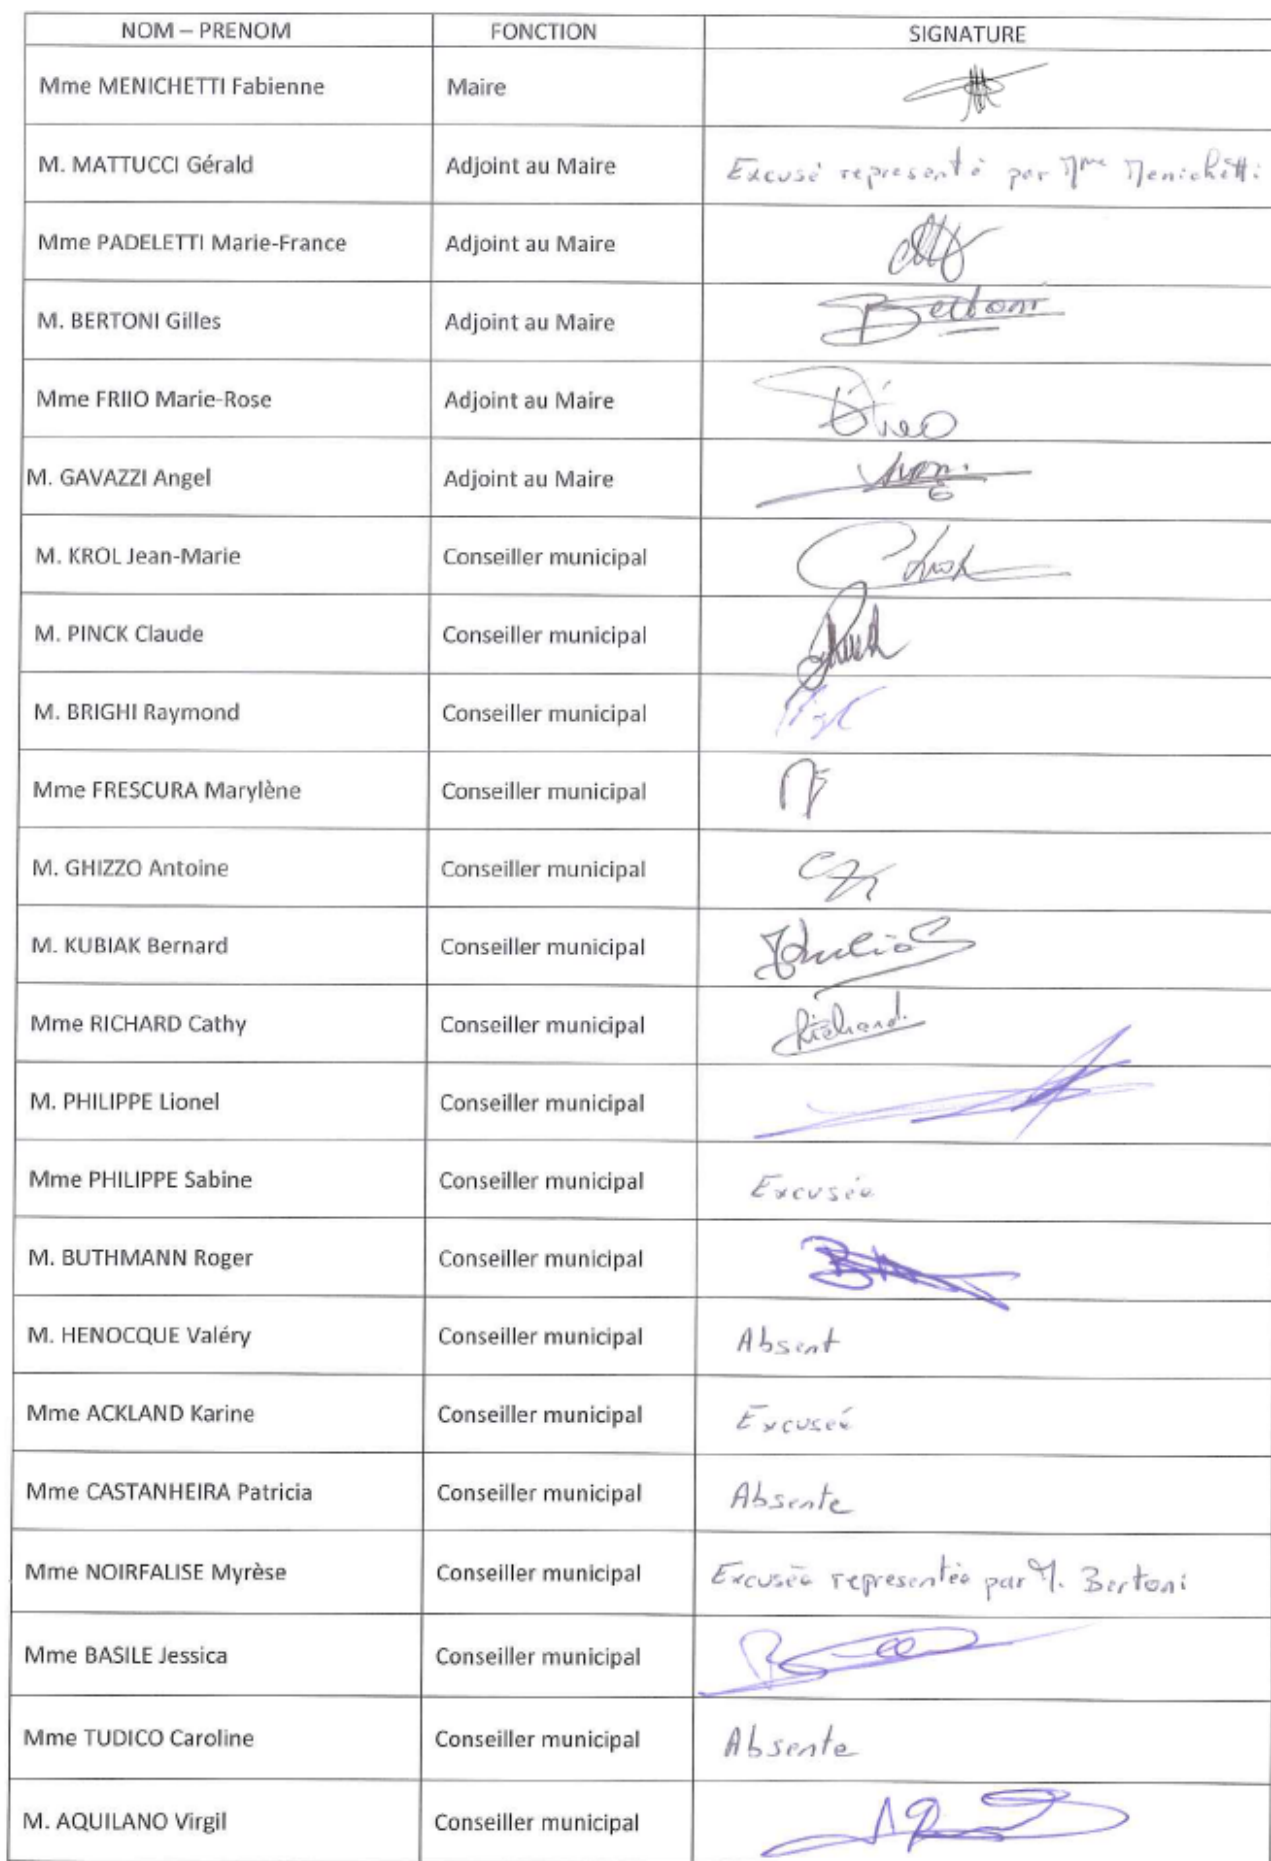 NOM – PRENOM FONCTION SIGNATURE
Mme MENICHETTI Fabienne Maire
M. MATTUCCI Gérald Adjoint au Maire Excusé representé par Mme Menichetti
Mme PADELETTI Marie-France Adjoint au Maire
M. BERTONI Gilles Adjoint au Maire Bertoni
Mme FRIIO Marie-Rose Adjoint au Maire
M. GAVAZZI Angel Adjoint au Maire
M. KROL Jean-Marie Conseiller municipal
M. PINCK Claude Conseiller municipal
M. BRIGHI Raymond Conseiller municipal
Mme FRESCURA Marylène Conseiller municipal
M. GHIZZO Antoine Conseiller municipal
M. KUBIAK Bernard Conseiller municipal
Mme RICHARD Cathy Conseiller municipal Richard
M. PHILIPPE Lionel Conseiller municipal
Mme PHILIPPE Sabine Conseiller municipal Excusée
M. BUTHMANN Roger Conseiller municipal
M. HENOCQUE Valéry Conseiller municipal Absent
Mme ACKLAND Karine Conseiller municipal Excuseé
Mme CASTANHEIRA Patricia Conseiller municipal Absente
Mme NOIRFALISE Myrèse Conseiller municipal Excusée representée par M. Bertoni
Mme BASILE Jessica Conseiller municipal
Mme TUDICO Caroline Conseiller municipal Absente
M. AQUILANO Virgil Conseiller municipal